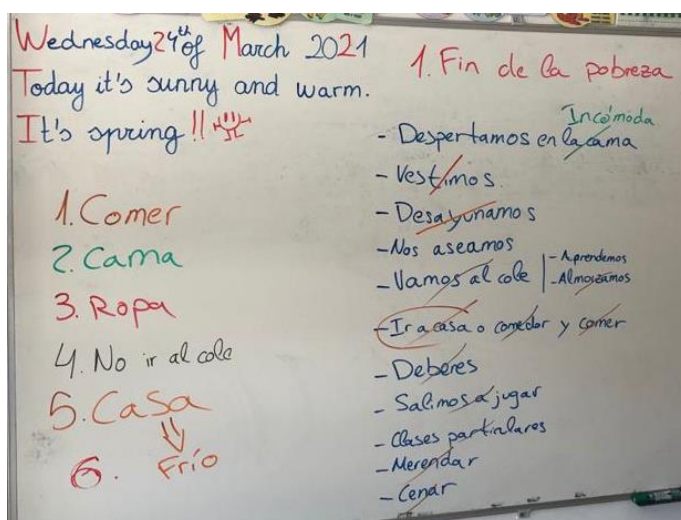 Wednesday 24th of March 2021
Today it's sunny and warm.
It's spring!!
1. Comer
2. Cama
3. Ropa
4. No ir al cole
5. Casa
6. Frío
1. Fin de la pobreza
Incómoda
- Despertamos en la cama
- Vestimos
- Desayunamos
- Nos aseamos
- Vamos al cole
- Aprendemos
- Almorzamos
- Ir a casa o comedor y comer
- Deberes
- Salimos a jugar
- Clases particulares
- Merendar
- Cenar